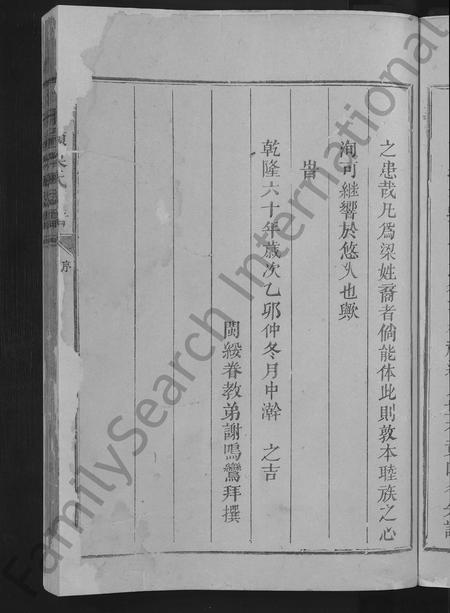 之患哉凡為梁姓裔者倘能体此則敦本睦族之心
洵可継響於悠久也歟
旹
乾隆六十年歲次乙卯仲冬月中澣 之吉
閩綏眷教弟謝鳴鸞拜撰
序
FamilySearch International